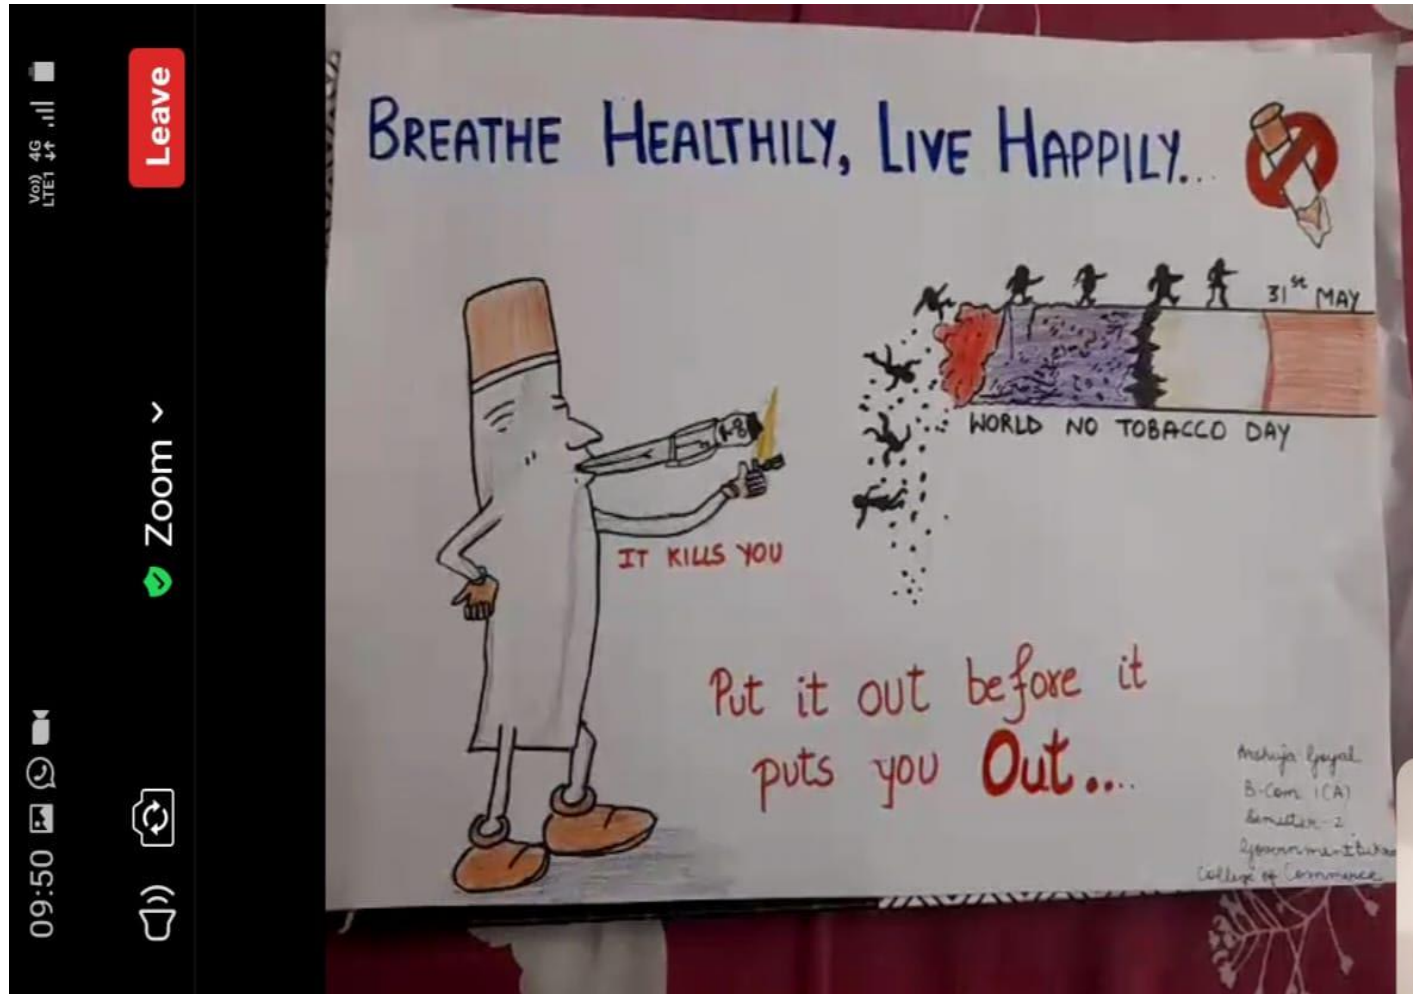 09:50
Vo)) 4G
LTE1
Zoom
Leave
BREATHE HEALTHILY, LIVE HAPPILY...
31st MAY
WORLD NO TOBACCO DAY
IT KILLS YOU
Put it out before it
puts you Out....
Goyal
B.Com 1(A)
Semester-2
Government
College of Commerce